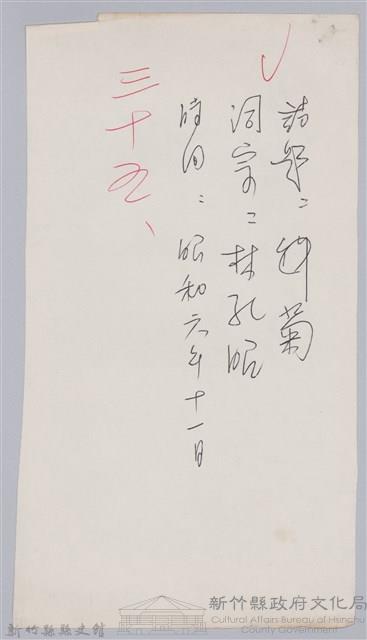 詩題：菊
詞宗：林孔昭
時間：昭和六年十一月
三十五、
新竹縣縣史館
新竹縣政府文化局
Cultural Affairs Bureau of Hsinchu
County Government